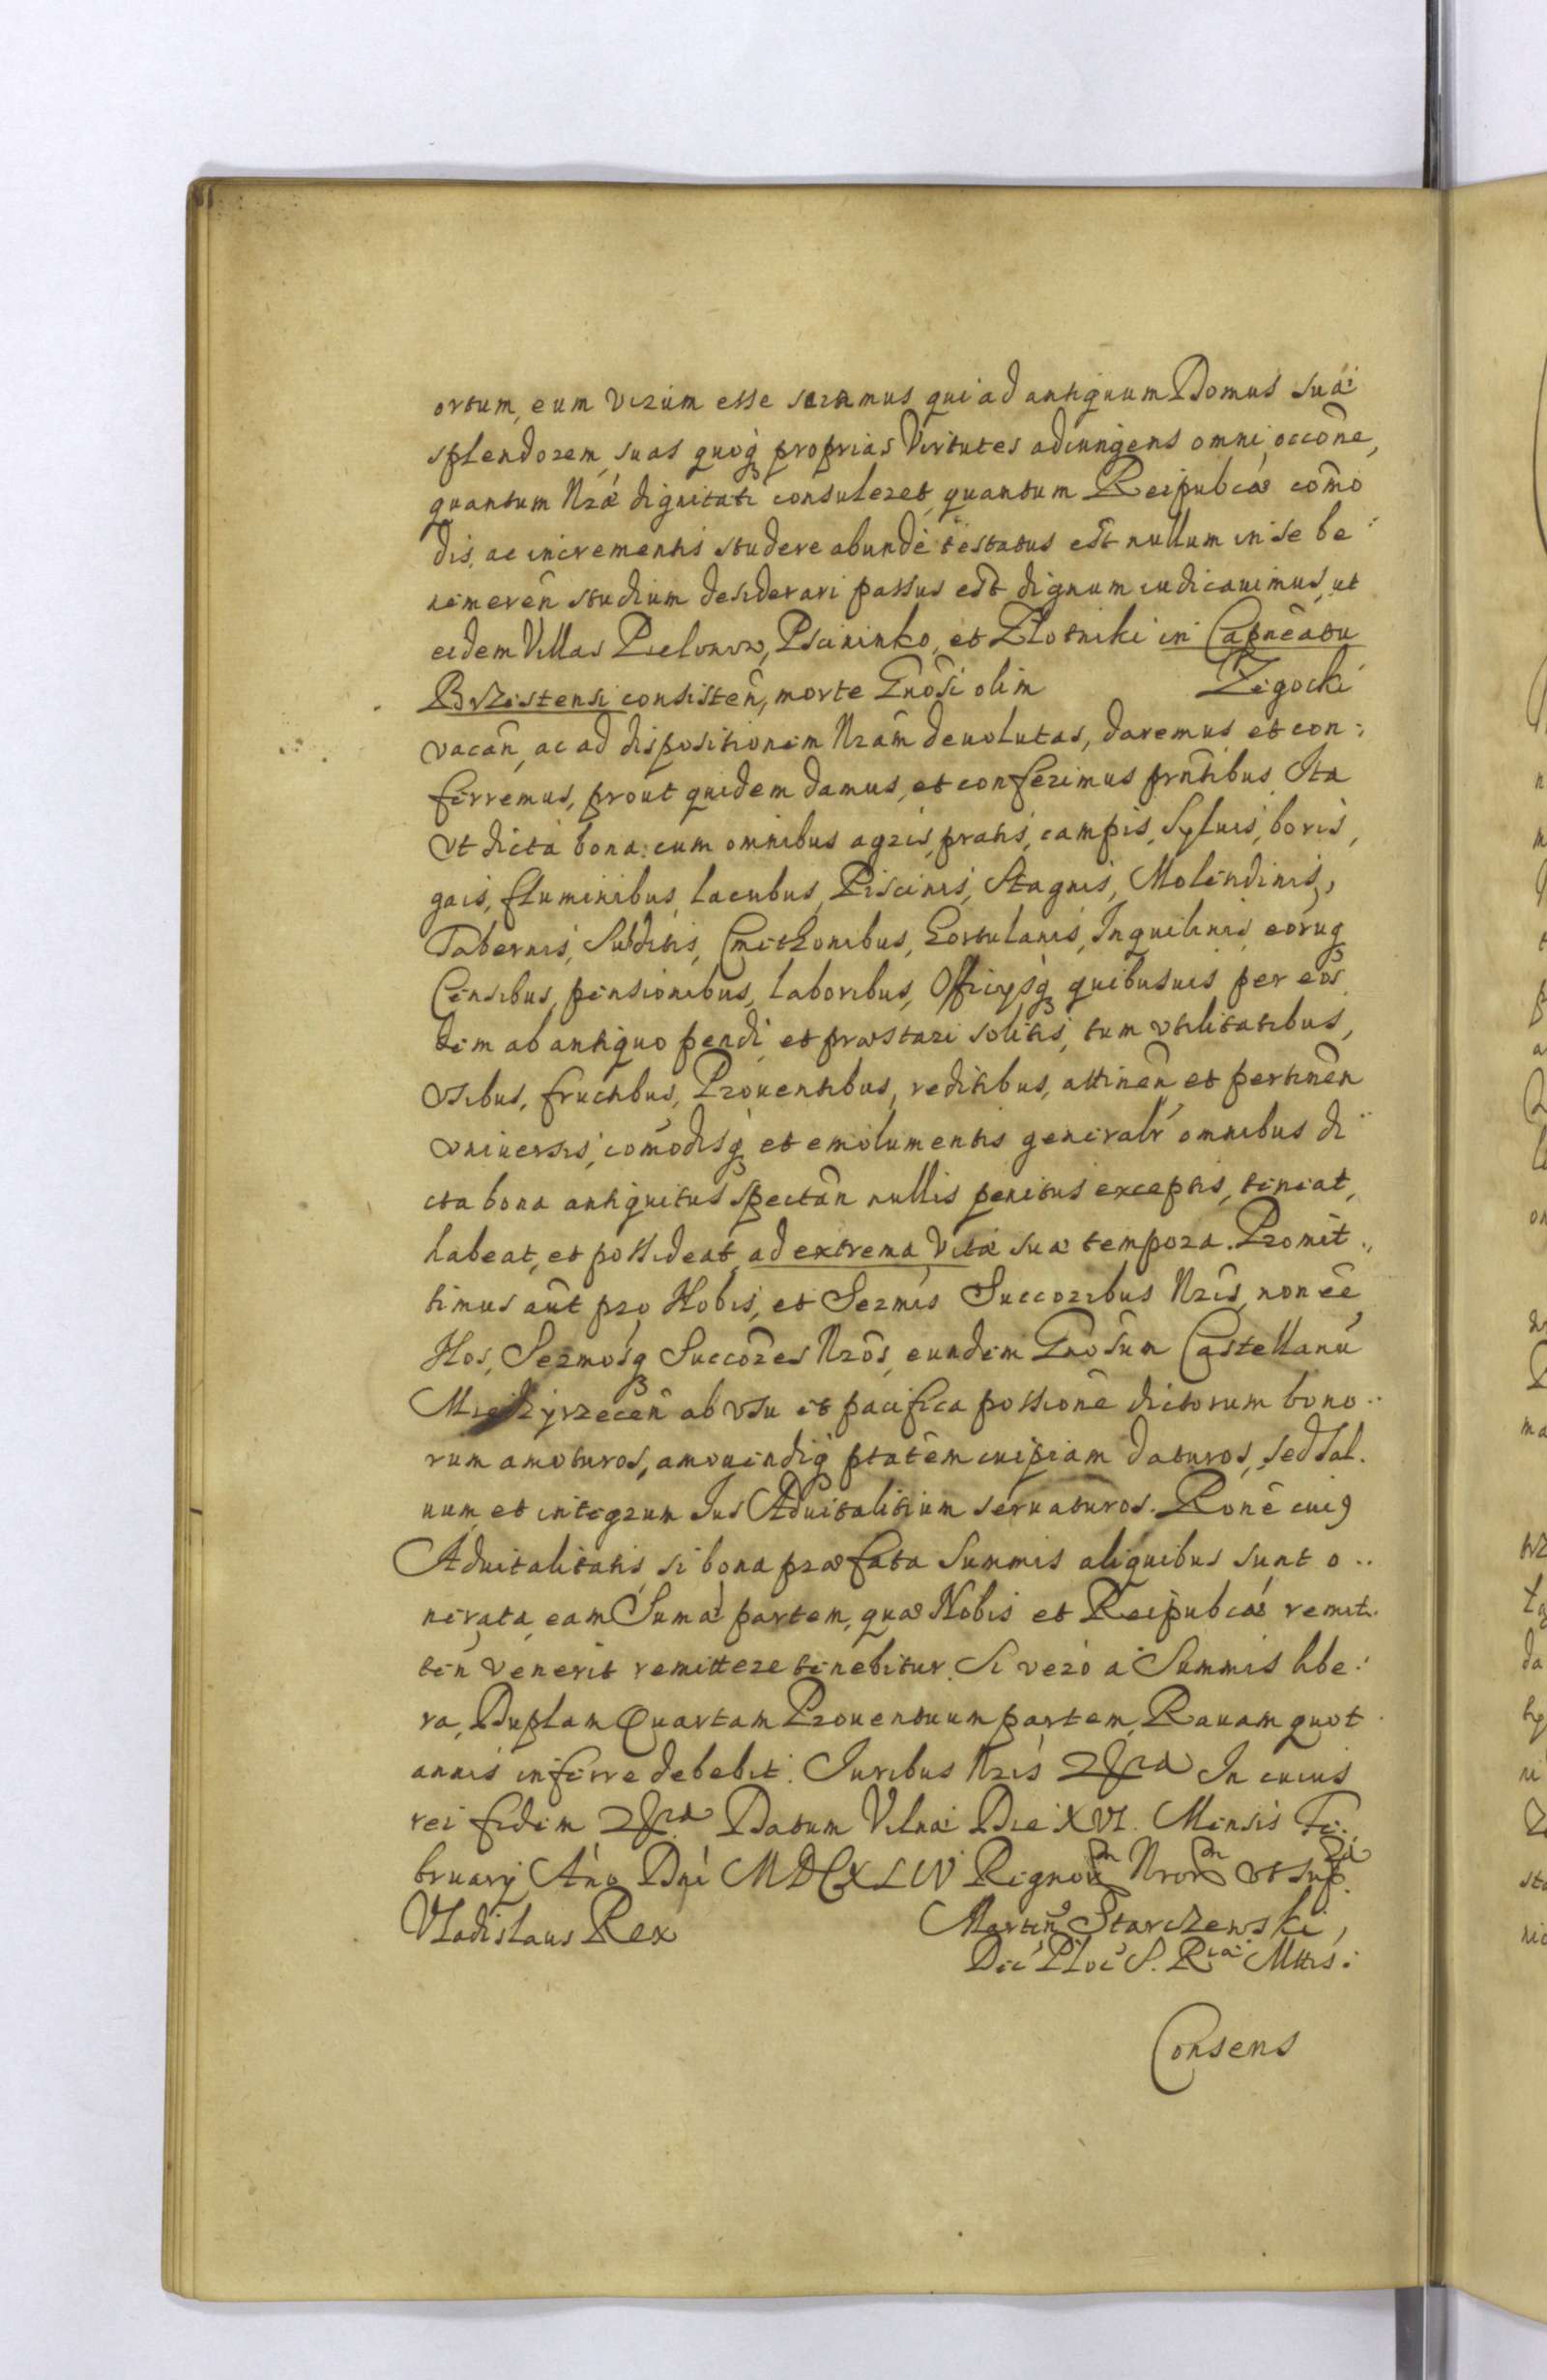 ortum, eum virum esse sciamus, qui ad antiquum Domus suæ
splendorem, suas quoq proprias Virtutes adiungens omni occone,
quantum Nræ dignitati consuleret, quantum Reipubcæ como
dis, ac incrementis studere abundè testatus est nullum in se be:
nemeren studium desiderari passus est dignum iudicauimus, ut
eidem Villas Pielonow, Pscininko, et Zlotniki in Capneatu
Brzestensi consisten, morte Gnosi olim Zegocki
vacan, ac ad dispositionem Nram deuolutas, daremus et con:
ferremus, prout quidem damus, et conferimus prntibus. Ita
Vt dicta bona cum omnibus agris, pratis, campis, Syluis, boris,
gais, fluminibus, lacubus, Piscinis, Stagnis, Molendinis,
Tabernis, Subditis, Cmethonibus, Hortulanis, Inquilinis, eoruq
Censibus, pensionibus, laboribus, Officysq quibusuis per eos
dem ab antiquo pendi, et præstari solitis, tum vtilitatibus,
vsibus, fructibus, Prouentibus, reditibus, attinen et pertinen
vniuersis, comodisq et emolumentis generalr omnibus di
cta bona antiquitus spectan nullis penitus exceptis, teneat,
habeat, et possideat, ad extrema Vitæ suæ tempora. Promit
timus aut pro Nobis, et Sermis Succoribus Nris, non ee
Nos, Sermosq Succores Nros, eundem Gnosum Castellanu
Miedzyrzecen ab vsu et pacifica possione dictorum bono
rum amoturos, amouendiq ptatem cuipiam daturos, sed sal.
uum et integrum Ius Aduitalitium seruaturos. Rone cui9
Aduitalitatis, si bona præfata Summis aliquibus sunt o..
nerata, eam Sumæ partem, quæ Nobis et Reipubcæ remit.
ten venerit remittere tenebitur. Si verò à Summis libe:
ra, Duplam Quartam Prouentuum partem, Rauam quot
annis inferre debebit. Iuribus Nris In cuius
rei fidem Datum Vilnæ Die XVI. Mensis Fe.
bruary Ano Dni MDCXLIV Regnor Nror vt sup.
Vladislaus Rex Martin9 Starczewski,
Dec Ploc S. Ræ Mttis:
Consens